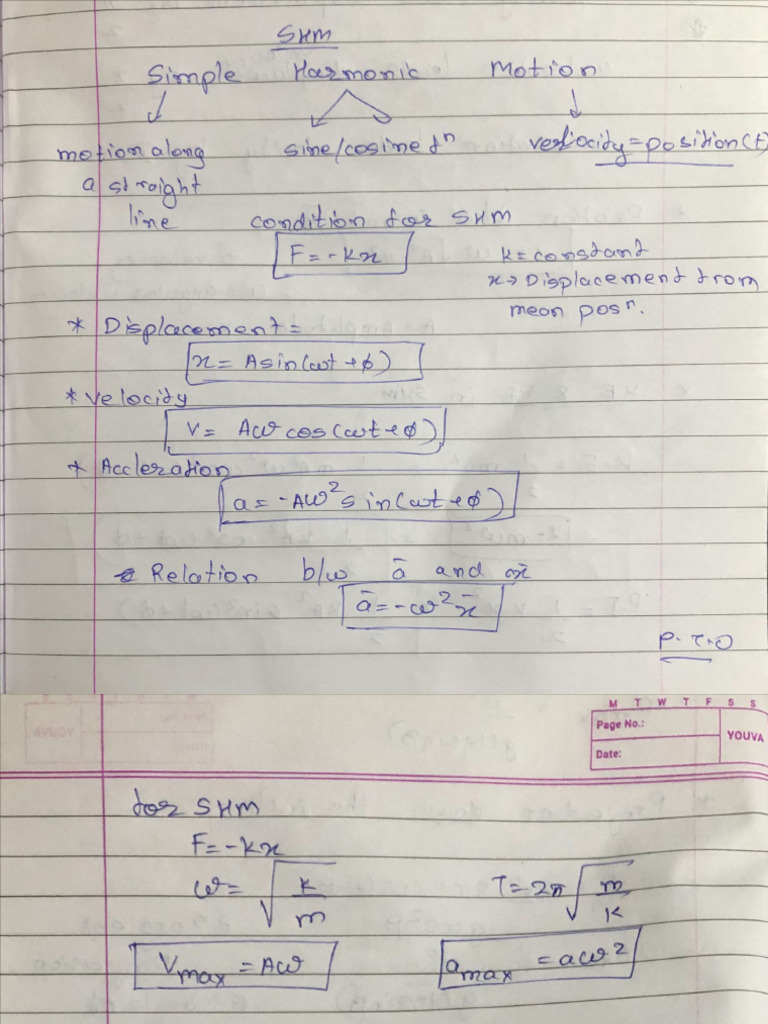 SHM
Simple Harmonic Motion
motion along sine/cosine fⁿ velocity = position(t)
a straight
line condition for SHM
F = -kx k = constant
x → Displacement from
mean posⁿ.
* Displacement =
x = A sin(ωt + φ)
* Velocity
V = Aω cos(ωt + φ)
* Accleration
a = -Aω² sin(ωt + φ)
Relation b/w ā and x̄
ā = -ω² x̄
P.T.O
M T W T F S S
Page No.:
YOUVA
Date:
for SHM
F = -kx
ω = √(k/m) T = 2π √(m/k)
Vmax = Aω amax = aω²